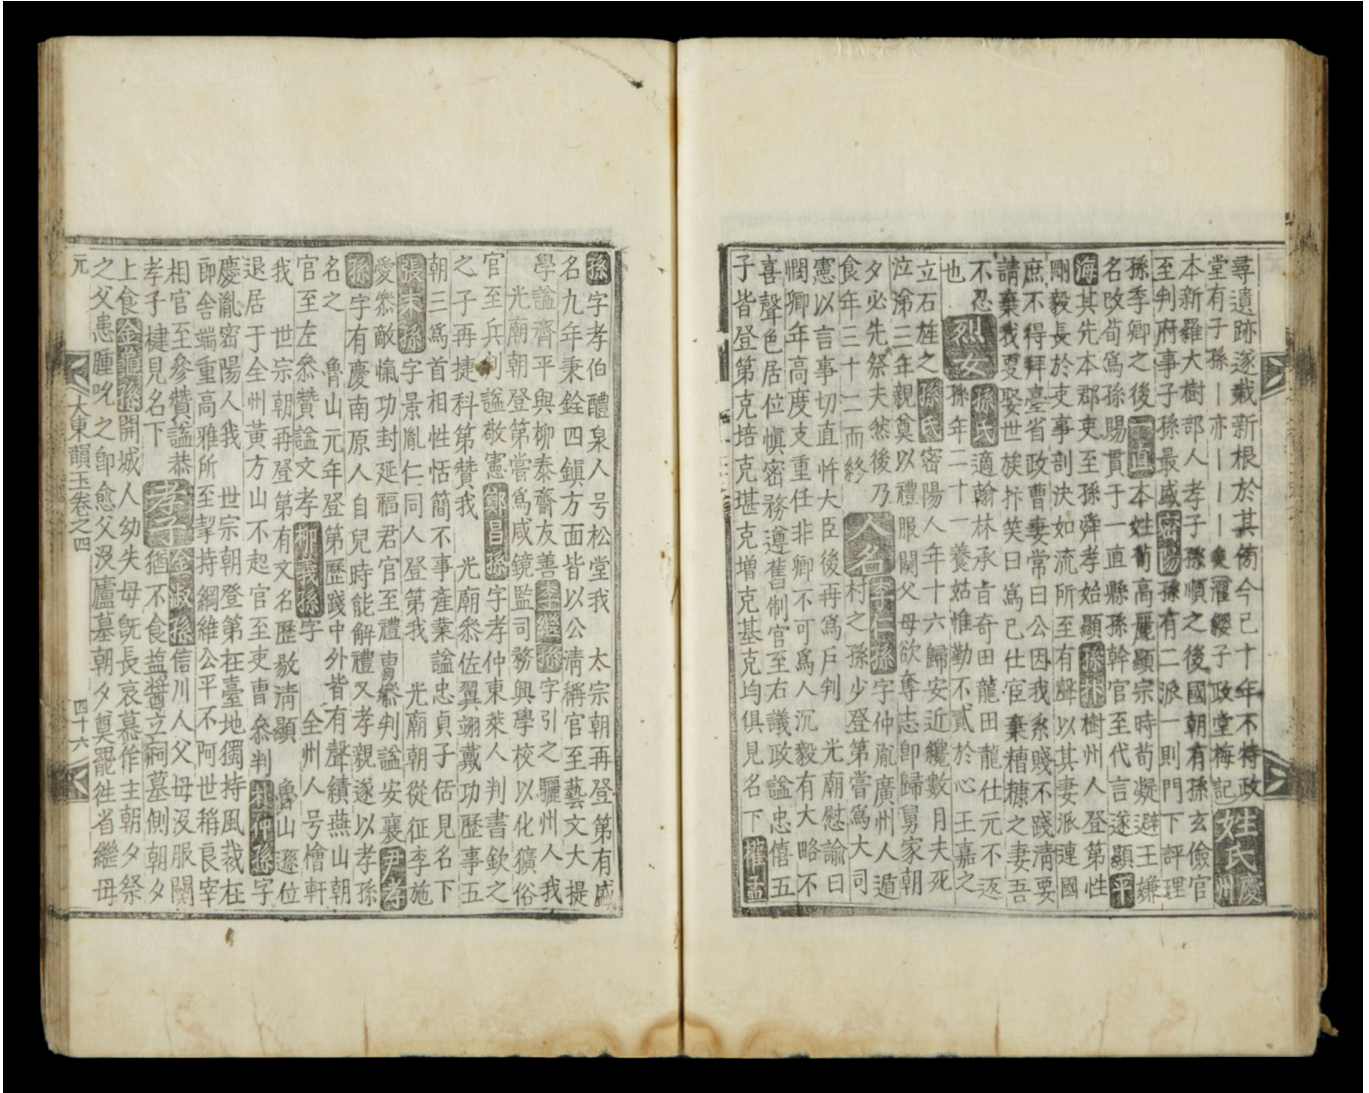 尋遺跡遂栽新根於其傍今已十年不特政
堂有子孫ㅣ亦ㅣㅣㅣ 纓子政堂梅記 姓氏 慶州
本新羅大樹部人孝子孫順之後國朝有孫玄儉官
至判府事子孫最盛 密陽 孫有二派一則門下評理
孫季卿之後 一直 本姓荀高麗顯宗時荀凝避王嫌
名改荀爲孫賜貫于一直縣孫幹官至代言遂顯 平
海 其先本郡吏至孫舜孝始顯 孫林 樹州人登第性
剛毅長於吏事剖決如流所至有聲以其妻派連國
庶不得拜臺省政曹妻常曰公因我系賤不踐淸要
請棄我更娶世族抃笑曰爲已仕宦棄糟糠之妻吾
不忍 烈女 孫氏 適翰林承旨奇田龍田龍仕元不返
也 孫年二十 養姑惟勤不貳於心王嘉之
立石旌之 孫氏 密陽人年十六歸安近纔數月夫死
泣涕三年親奠以禮服闋父母欲奪志卽歸舅家朝
夕必先祭夫然後乃 人名 李仁孫 字仲胤廣州人遁
食年三十二而終 村之孫少登第嘗爲大司
憲以言事切直忤大臣後再爲戶判 光廟慰諭曰
憫卿年高度支重任非卿不可爲人沉毅有大略不
喜聲色居位愼密務遵舊制官至右議政謚忠僖五
子皆登第克培克堪克增克基克均俱見名下 權孟
孫 字孝伯醴泉人号松堂我 太宗朝再登第有盛
名九年秉銓四鎭方面皆以公淸稱官至藝文大提
學謚齊平與柳泰齋友善 李繼孫 字引之驪州人我
光廟朝登第嘗爲咸鏡監司務興學校以化獷俗
官至兵判謚敬憲 鄭昌孫 字孝仲東萊人判書欽之
之子再捷科第贊我 光廟叅佐翼翊戴功歷事五
朝三爲首相性恬簡不事產業謚忠貞子佸見名下
張末孫 字景胤仁同人登第我 光廟朝從征李施
愛叅敵愾功封延福君官至禮曹叅判謚安襄 尹孝
孫 字有慶南原人自兒時能解禮又孝親遂以孝孫
名之 魯山元年登第歷踐中外皆有聲績燕山朝
官至左叅贊謚文孝 柳義孫 字 全州人号檜軒
我 世宗朝再登第有文名歷敭淸顯 魯山遜位
退居于全州黃方山不起官至吏曹叅判 朴仲孫 字
慶胤密陽人我 世宗朝登第在臺地獨持風裁在
卽舍端重高雅所至挈持綱維公平不阿世稱良宰
相官至參贊謚恭 孝子 金淑孫 信川人父母沒服闋
孝子楗見名下 猶不食益醬立祠墓側朝夕
上食 金麗孫 開城人幼失母旣長哀慕作主朝夕祭
之父患腫吮之卽愈父沒廬墓朝夕奠罷徃省繼母
元 大東韻玉卷之四 四十六